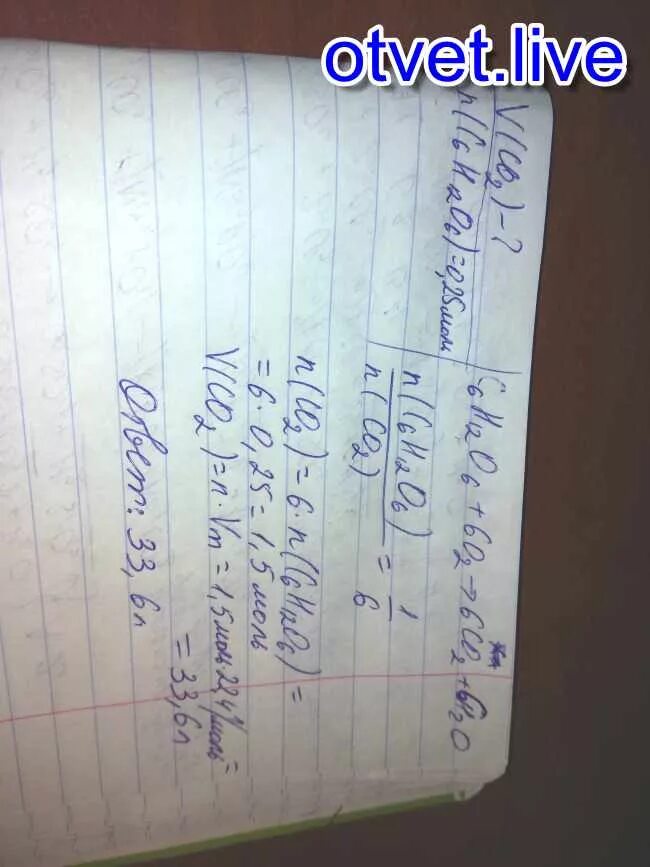 otvet.live
V(CO2)-?
n(C6H12O6)=0,25моль
C6H12O6+6O2→6CO2+6H2O
n(C6H12O6)/n(CO2)=1/6
n(CO2)=6·n(C6H12O6)=
=6·0,25=1,5моль
V(CO2)=n·Vm=1,5моль·22,4л/моль=
=33,6л
Ответ: 33,6л